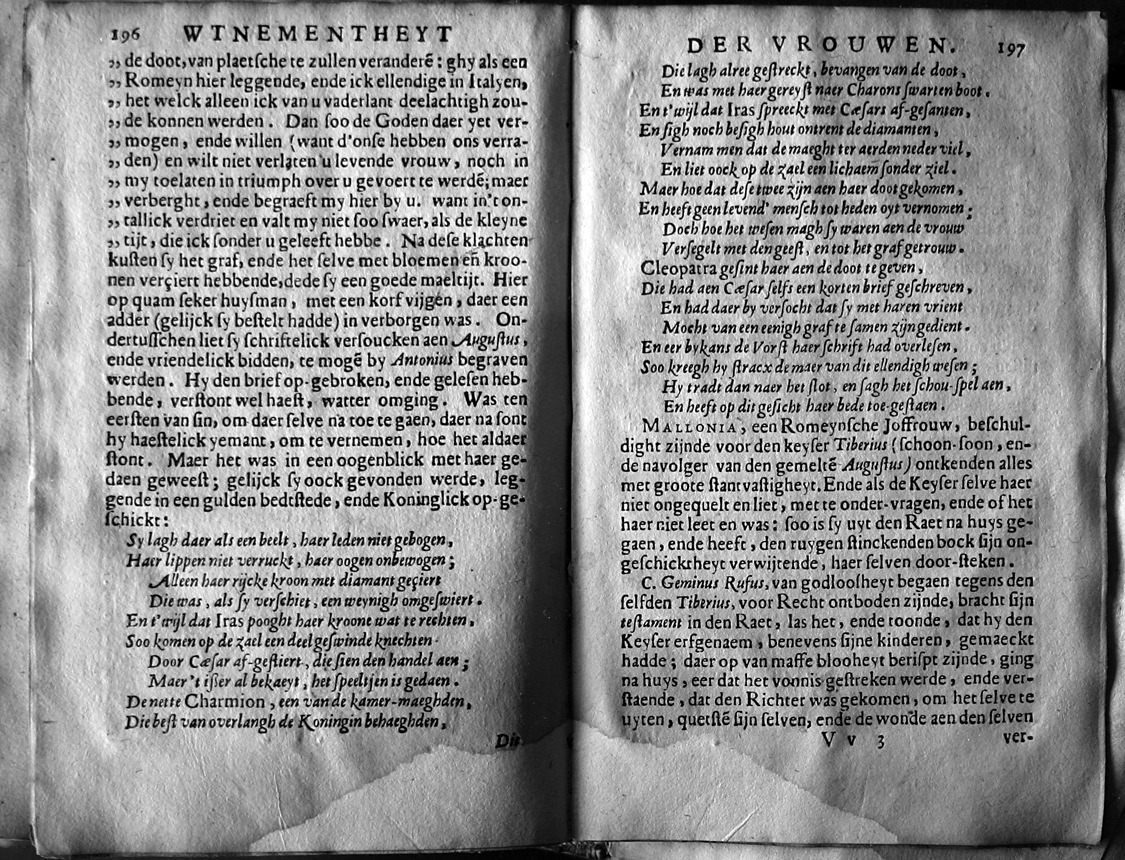 196 WTNEMENTHEYT
,, de doot, van plaetſche te zullen veranderẽ: ghy als een
,, Romeyn hier leggende, ende ick ellendige in Italyen,
,, het welck alleen ick van u vaderlant deelachtigh zou-
,, de konnen werden. Dan ſoo de Goden daer yet ver-
,, mogen, ende willen (want d'onſe hebben ons verra-
,, den) en wilt niet verlaten u levende vrouw, noch in
,, my toelaten in triumph over u gevoert te werdẽ; maer
,, verberght, ende begraeft my hier by u. want in't on-
,, tallick verdriet en valt my niet ſoo ſwaer, als de kleyne
,, tijt, die ick ſonder u geleeft hebbe. Na deſe klachten
kuſten ſy het graf, ende het ſelve met bloemen eñ kroo-
nen verçiert hebbende, dede ſy een goede maeltijt. Hier
op quam ſeker huyſman, met een korf vijgen, daer een
adder (gelijck ſy beſtelt hadde) in verborgen was. On-
dertuſſchen liet ſy ſchriftelick verſoucken aen Auguſtus,
ende vriendelick bidden, te mogẽ by Antonius begraven
werden. Hy den brief op-gebroken, ende geleſen heb-
bende, verſtont wel haeſt, watter omging. Was ten
eerſten van ſin, om daer ſelve na toe te gaen, daer na ſont
hy haeſtelick yemant, om te vernemen, hoe het aldaer
ſtont. Maer het was in een oogenblick met haer ge-
daen geweeſt; gelijck ſy oock gevonden werde, leg-
gende in een gulden bedtſtede, ende Koninglick op-ge-
ſchickt:
Sy lagh daer als een beelt, haer leden niet gebogen,
Haer lippen niet verruckt, haer oogen onbewogen;
Alleen haer rijcke kroon met diamant geçiert
Die was, als ſy verſchiet, een weynigh omgeſwiert.
En t'wijl dat Iras pooght haer kroone wat te rechten,
Soo komen op de zael een deel geſwinde knechten
Door Cæſar af-geſtiert, die ſien den handel aen;
Maer 't ißer al bekaeyt, het ſpeeltjen is gedaen.
De nette Charmion, een van de kamer-maeghden,
Die beſt van overlangh de Koningin behaeghden,
Die
DER VROUWEN. 197
Die lagh alree geſtreckt, bevangen van de doot,
En was met haer gereyſt naer Charons ſwarten boot.
En t'wijl dat Iras ſpreeckt met Cæſars af-geſanten,
En ſigh noch beſigh hout ontrent de diamanten,
Vernam men dat de maeght ter aerden neder viel,
En liet oock op de zael een lichaem ſonder ziel.
Maer hoe dat deſe twee zijn aen haer doot gekomen,
En heeft geen levend' menſch tot heden oyt vernomen;
Doch hoe het weſen magh ſy waren aen de vrouw
Verſegelt met den geeſt, en tot het graf getrouw.
Cleopatra geſint haer aen de doot te geven,
Die had aen Cæſar ſelfs een korten brief geſchreven,
En had daer by verſocht dat ſy met haren vrient
Mocht van een eenigh graf te ſamen zijn gedient.
En eer bykans de Vorſt haer ſchrift had overleſen,
Soo kreegh hy ſtracx de maer van dit ellendigh weſen;
Hy tradt dan naer het ſlot, en ſagh het ſchou-ſpel aen,
En heeft op dit geſicht haer bede toe-geſtaen.
MALLONIA, een Romeynſche Joffrouw, beſchul-
dight zijnde voor den keyſer Tiberius (ſchoon-ſoon, en-
de navolger van den gemeltẽ Auguſtus) ontkenden alles
met groote ſtantvaſtigheyt. Ende als de Keyſer ſelve haer
niet ongequelt en liet, met te onder-vragen, ende of het
haer niet leet en was: ſoo is ſy uyt den Raet na huys ge-
gaen, ende heeft, den ruygen ſtinckenden bock ſijn on-
geſchicktheyt verwijtende, haer ſelven door-ſteken.
C. Geminus Rufus, van godlooſheyt begaen tegens den
ſelfden Tiberius, voor Recht ontboden zijnde, bracht ſijn
teſtament in den Raet, las het, ende toonde, dat hy den
Keyſer erfgenaem, benevens ſijne kinderen, gemaeckt
hadde; daer op van maffe blooheyt beriſpt zijnde, ging
na huys, eer dat het vonnis geſtreken werde, ende ver-
ſtaende, dat den Richter was gekomen, om het ſelve te
uyten, quetſtẽ ſijn ſelven, ende de wonde aen den ſelven
V v 3 ver-